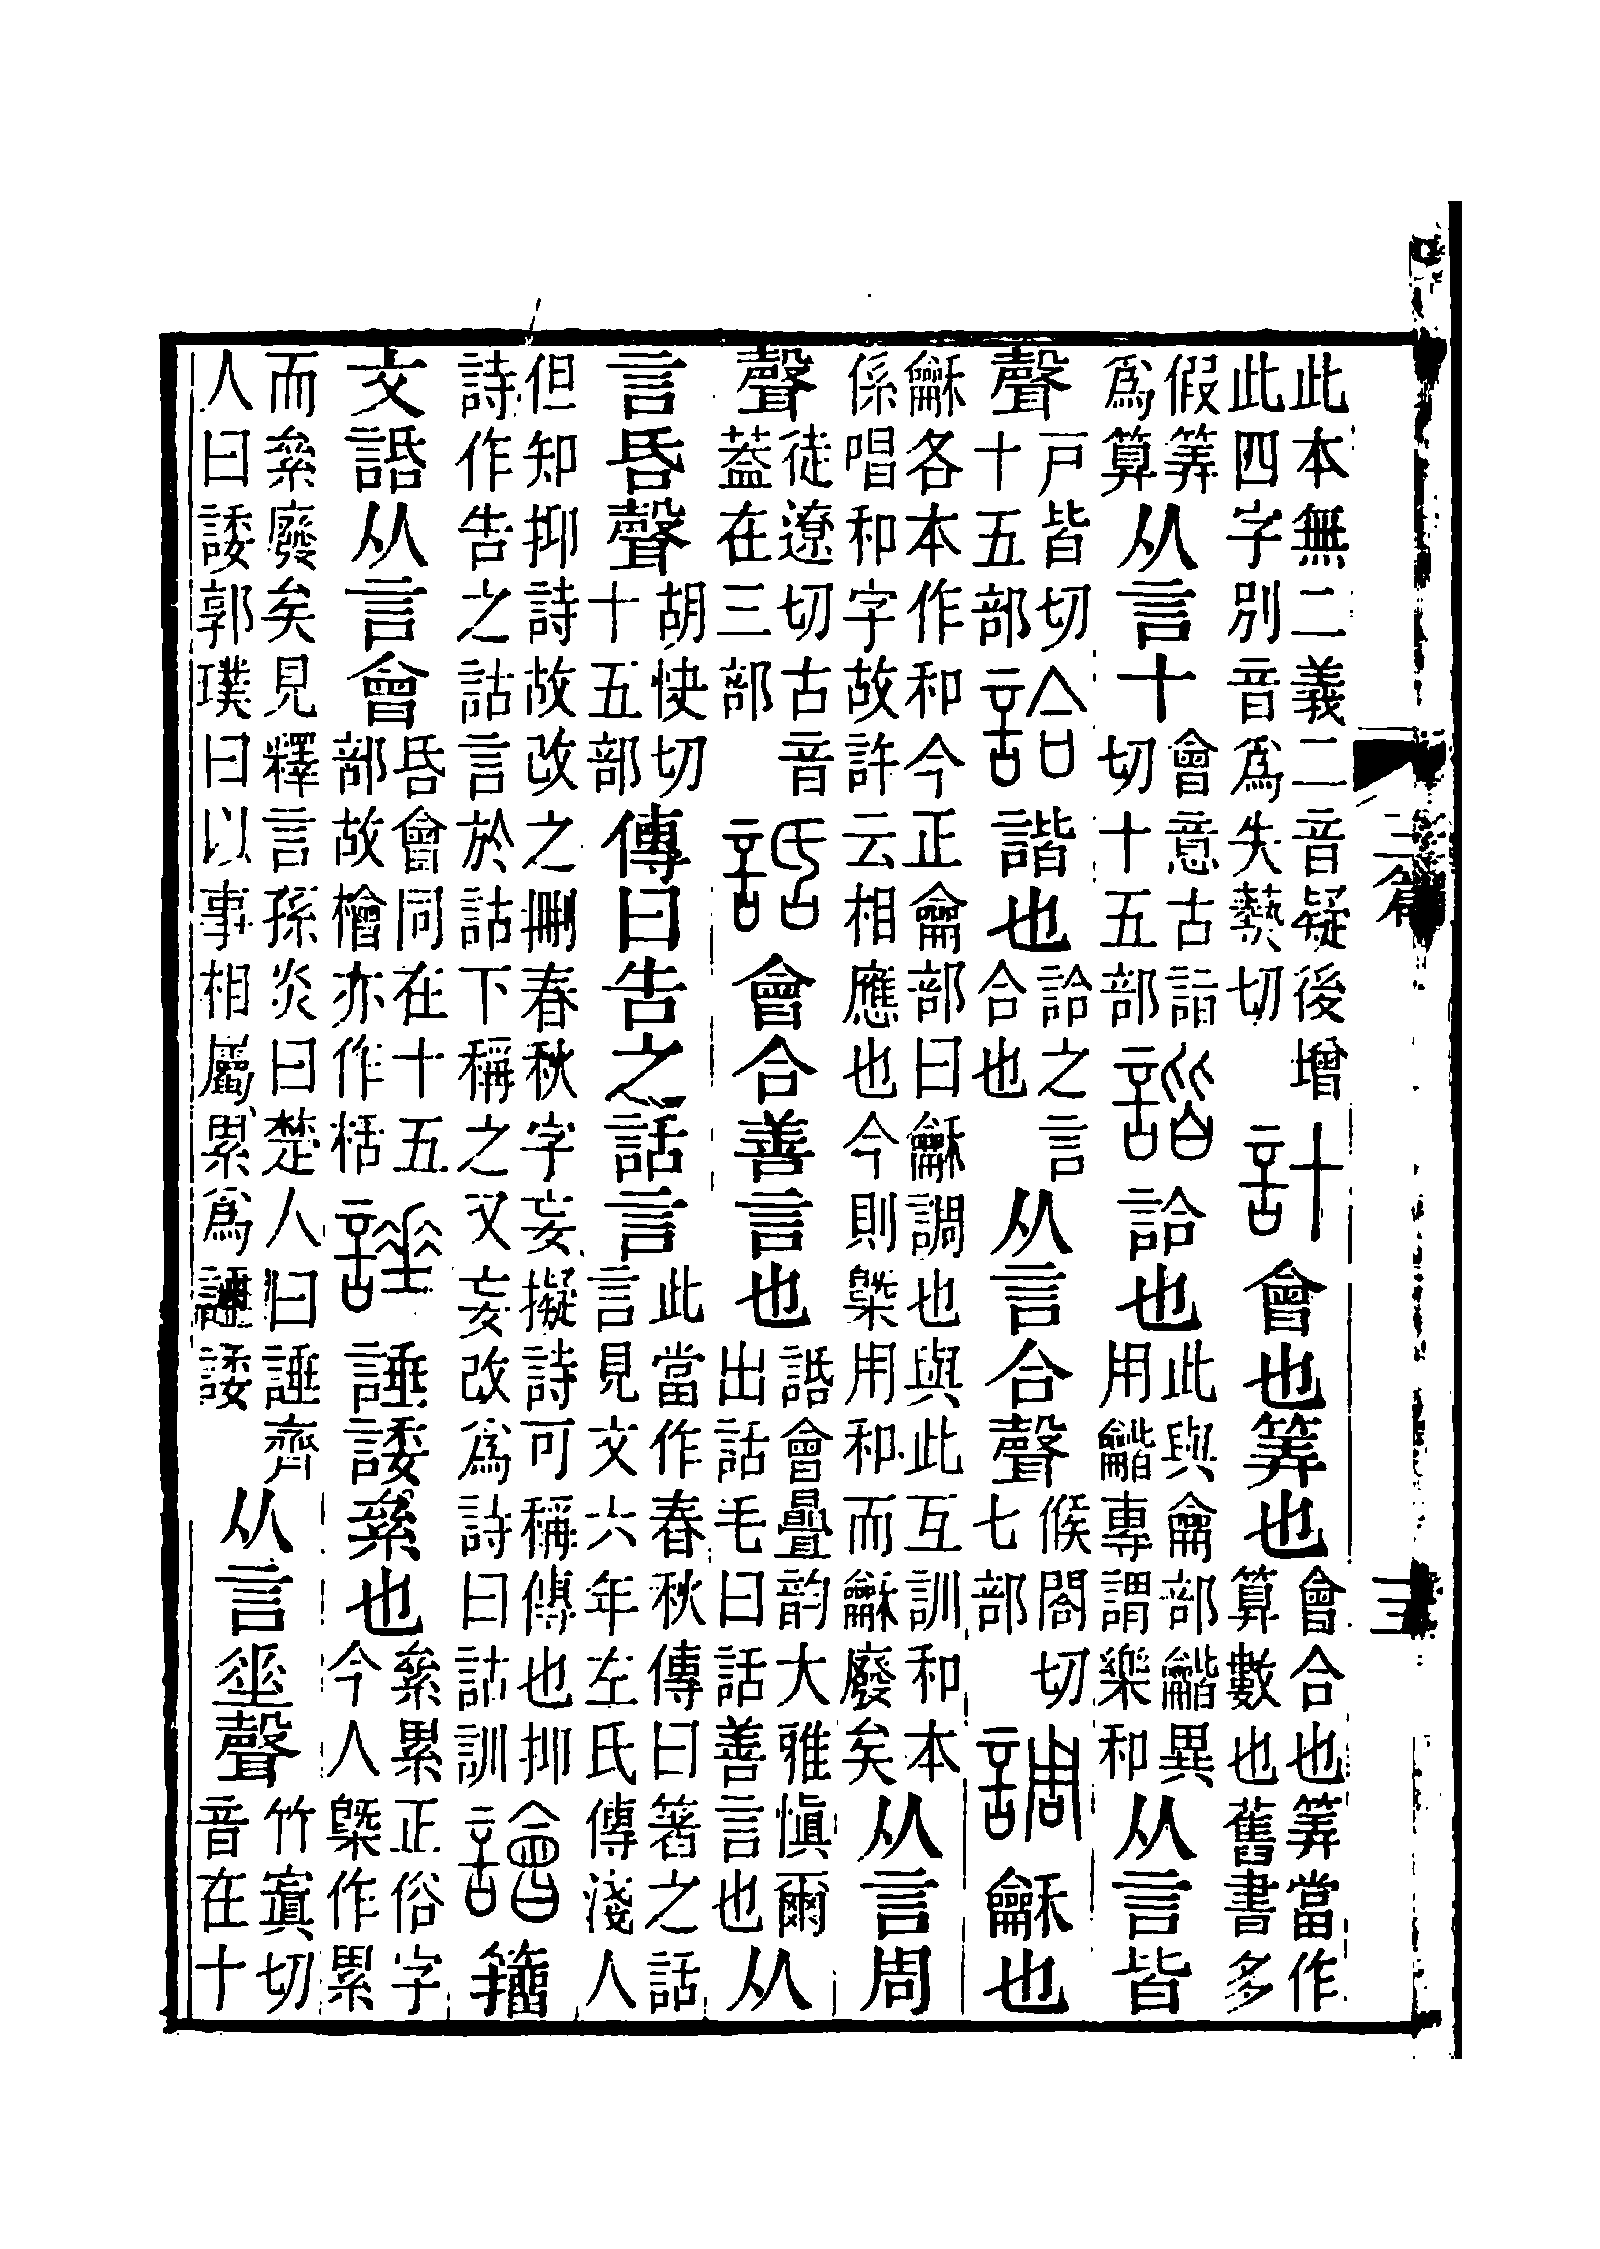 此本無二義二音疑後增此四字別音爲失埶切計會也筭也會合也筭當作算數也舊書多
假筭爲算从言十會意古詣切十五部諧詥也此與龠部龤異用龤專謂樂和从言皆
聲戶皆切十五部詥諧也詥之言合也从言合聲候閤切七部調龢也
龢各本作和今正龠部曰龢調也與此互訓和本係唱和字故許云相應也今則槩用和而龢廢矣从言周
聲徒遼切古音蓋在三部䛡會合善言也䛡會曡韵大雅愼爾出話毛曰話善言也从
言昏聲胡快切十五部傳曰告之話言此當作春秋傳曰箸之話言見文六年左氏傳淺人
但知抑詩故改之刪春秋字妄擬詩可稱傳也抑詩作告之詁言於詁下稱之又妄改爲詩曰詁訓譮籒
文䛡从言會昏會同在十五部故檜亦作栝諈諈諉絫也絫累正俗字今人槩作累
而絫廢矣見釋言孫炎曰楚人曰諈齊人曰諉郭璞曰以事相屬累爲諈諉从言𡍮聲竹寘切音在十